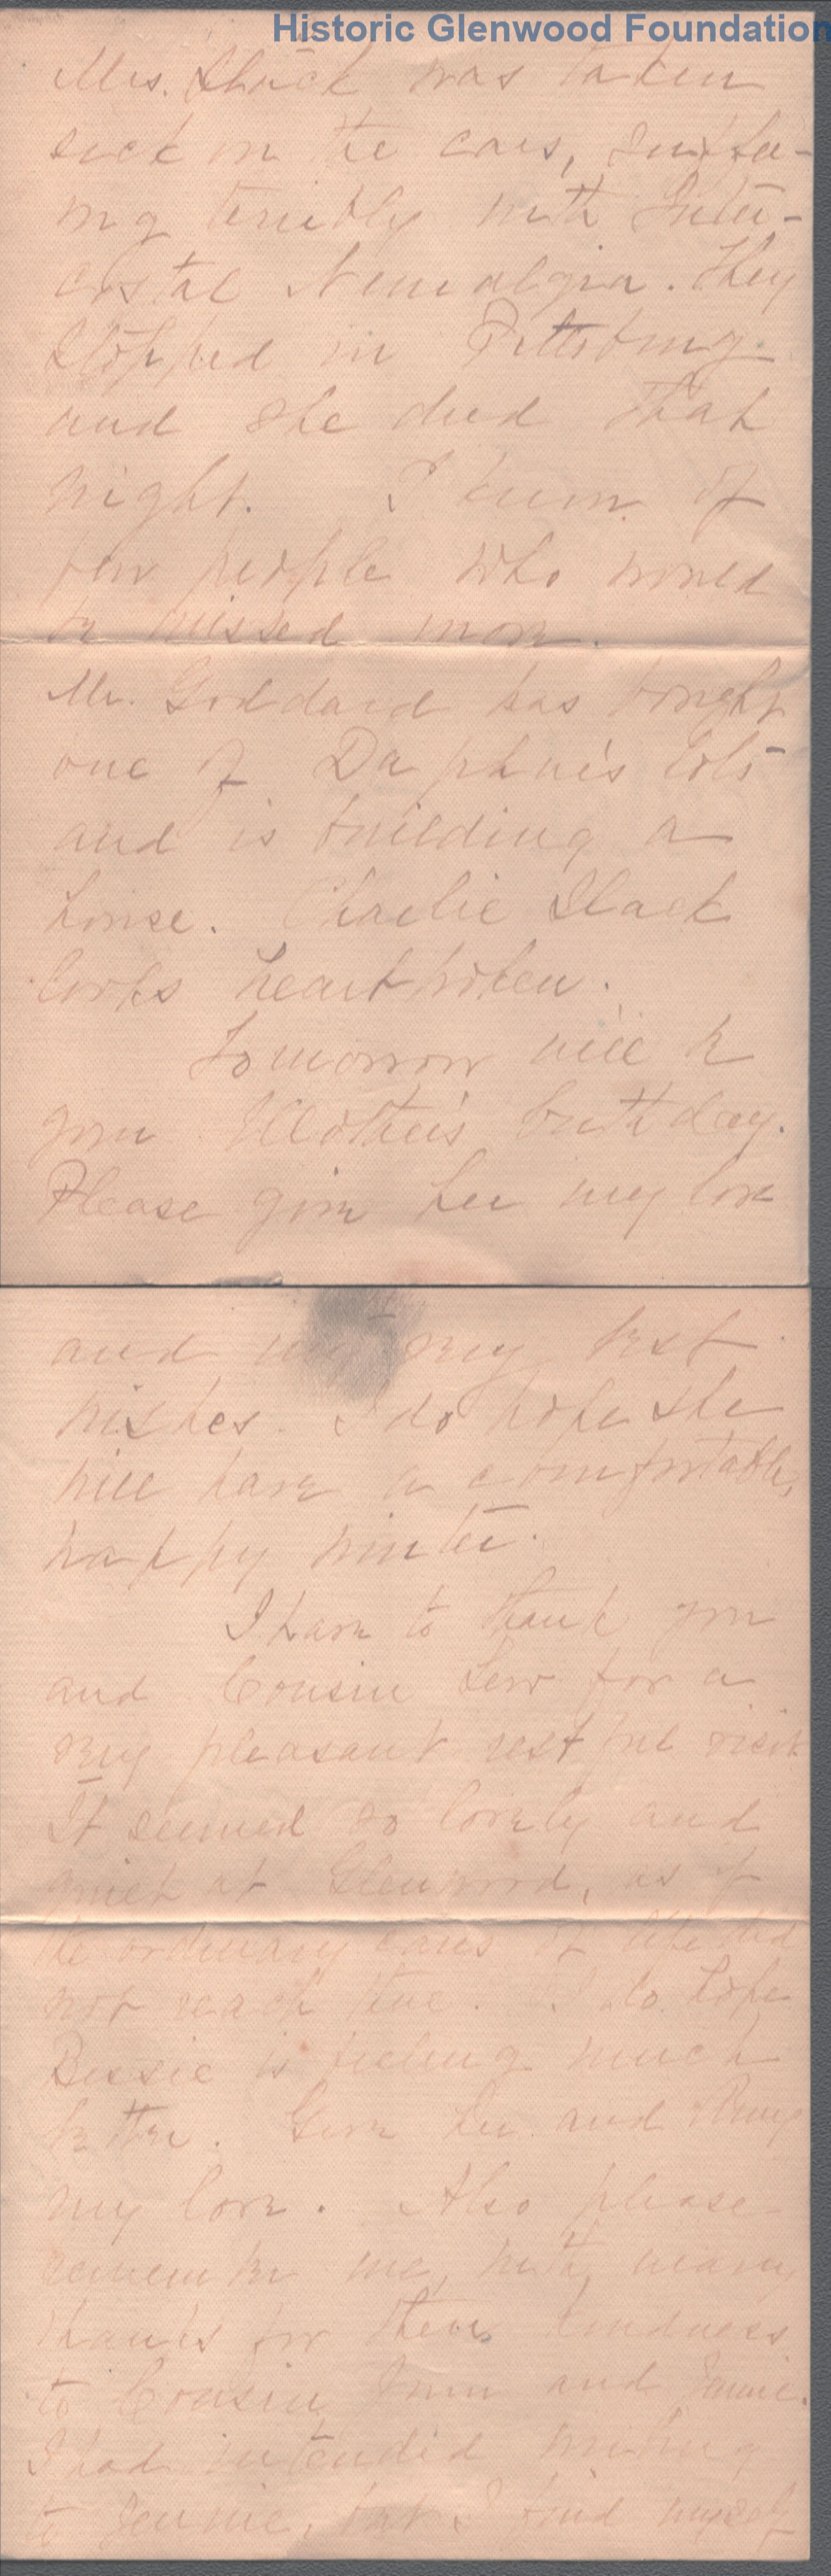 Historic Glenwood Foundation
Mrs. Slack was taken
sick on the cars, suffer-
ing terribly with Inter-
costal Neuralgia. They
stopped in Pittsburg
and she died that
night. I know of
few people who would
be missed more.
Mr. Goddard has bought
one of Daphne's lots
and is building a
house. Charlie Slack
looks heart broken.
Tomorrow will be
your Mother's birthday.
Please give her my love
and my best
wishes. I do hope she
will have a comfortable,
happy winter.
I have to thank you
and Cousin Lew for a
very pleasant restful visit
It seemed so lovely and
quiet at Glenwood, as if
the ordinary cares of life did
not reach there. I do hope
Bessie is feeling much
better. Give her and
my love. Also please
remember me, with many
thanks for their kindness
to Cousin and Jennie.
I had intended writing
to Jennie, but I find myself